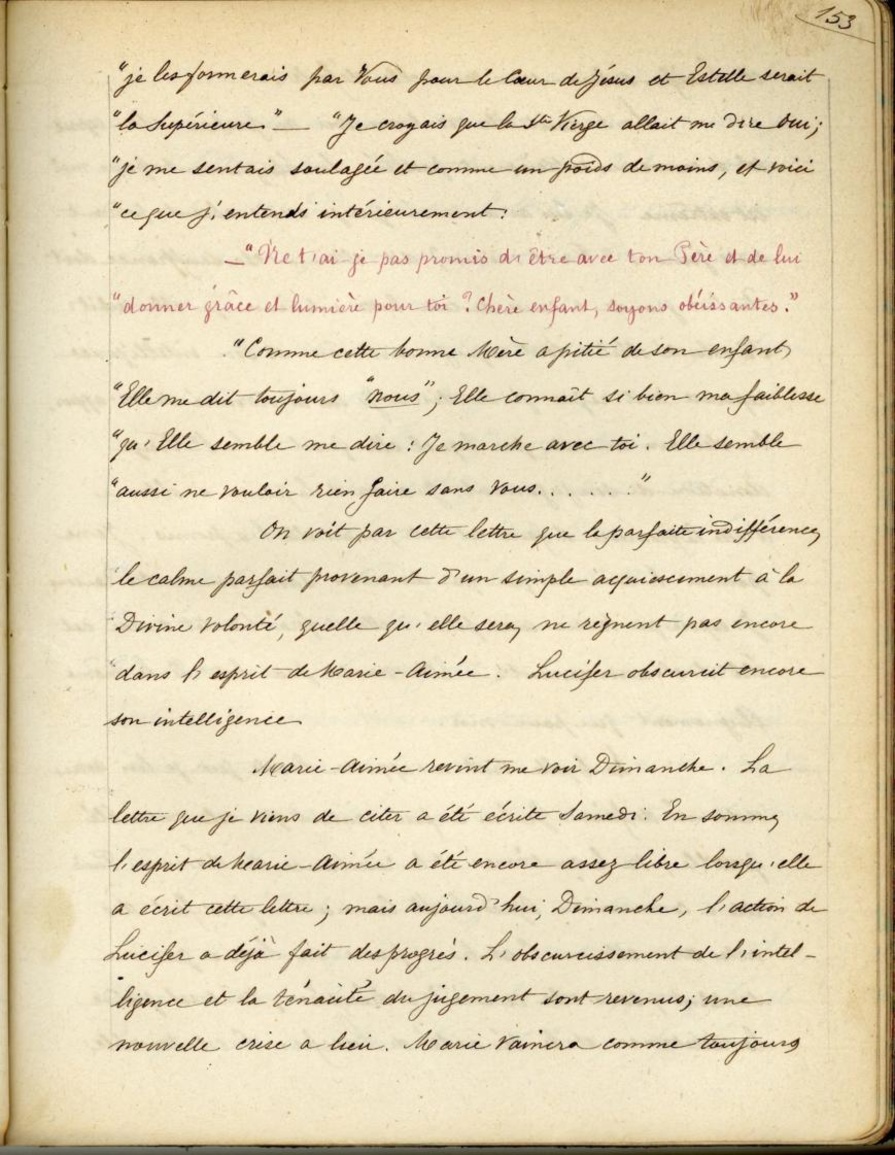 153
"je les formerais par Vous pour le Cœur de Jésus et Estelle serait
"la Supérieure." — "Je croyais que la Ste Vierge allait me dire Oui;
"je me sentais soulagée et comme un poids de moins, et voici
"ce que j'entends intérieurement:
—"Ne t'ai je pas promis d'être avec ton Père et de lui
"donner grâce et lumière pour toi? Chère enfant, soyons obéissantes."
"Comme cette bonne Mère a pitié de son enfant,
"Elle me dit toujours "nous"; Elle connaît si bien ma faiblesse
"qu'Elle semble me dire: Je marche avec toi. Elle semble
"aussi ne vouloir rien faire sans vous......"
On voit par cette lettre que la parfaite indifférence,
le calme parfait provenant d'un simple acquiescement à la
Divine volonté, quelle qu'elle sera, ne règnent pas encore
dans l'esprit de Marie-Aimée. Lucifer obscurcit encore
son intelligence
Marie-Aimée revint me voir Dimanche. La
lettre que je viens de citer a été écrite Samedi. En somme,
l'esprit de Marie-Aimée a été encore assez libre lorsqu'elle
a écrit cette lettre; mais aujourd'hui, Dimanche, l'action de
Lucifer a déjà fait des progrés. L'obscurcissement de l'intel-
ligence et la ténacité du jugement sont revenus; une
nouvelle crise a lieu. Marie vaincra comme toujours,